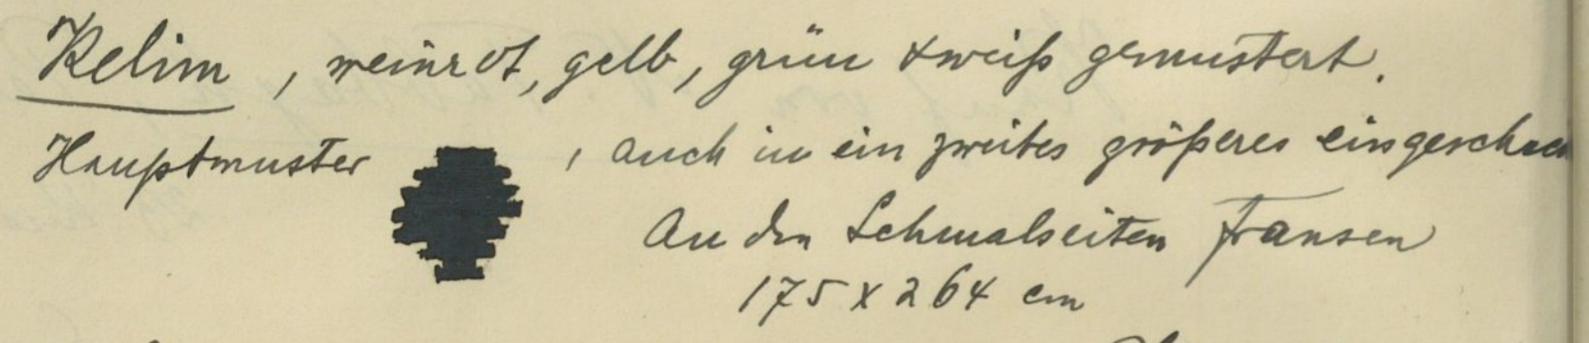 Kelim, weinrot, gelb, grün & weiß gemustert.
Hauptmuster , auch in ein zweites größeres
An den Schmalseiten Fransen
175 x 264 cm